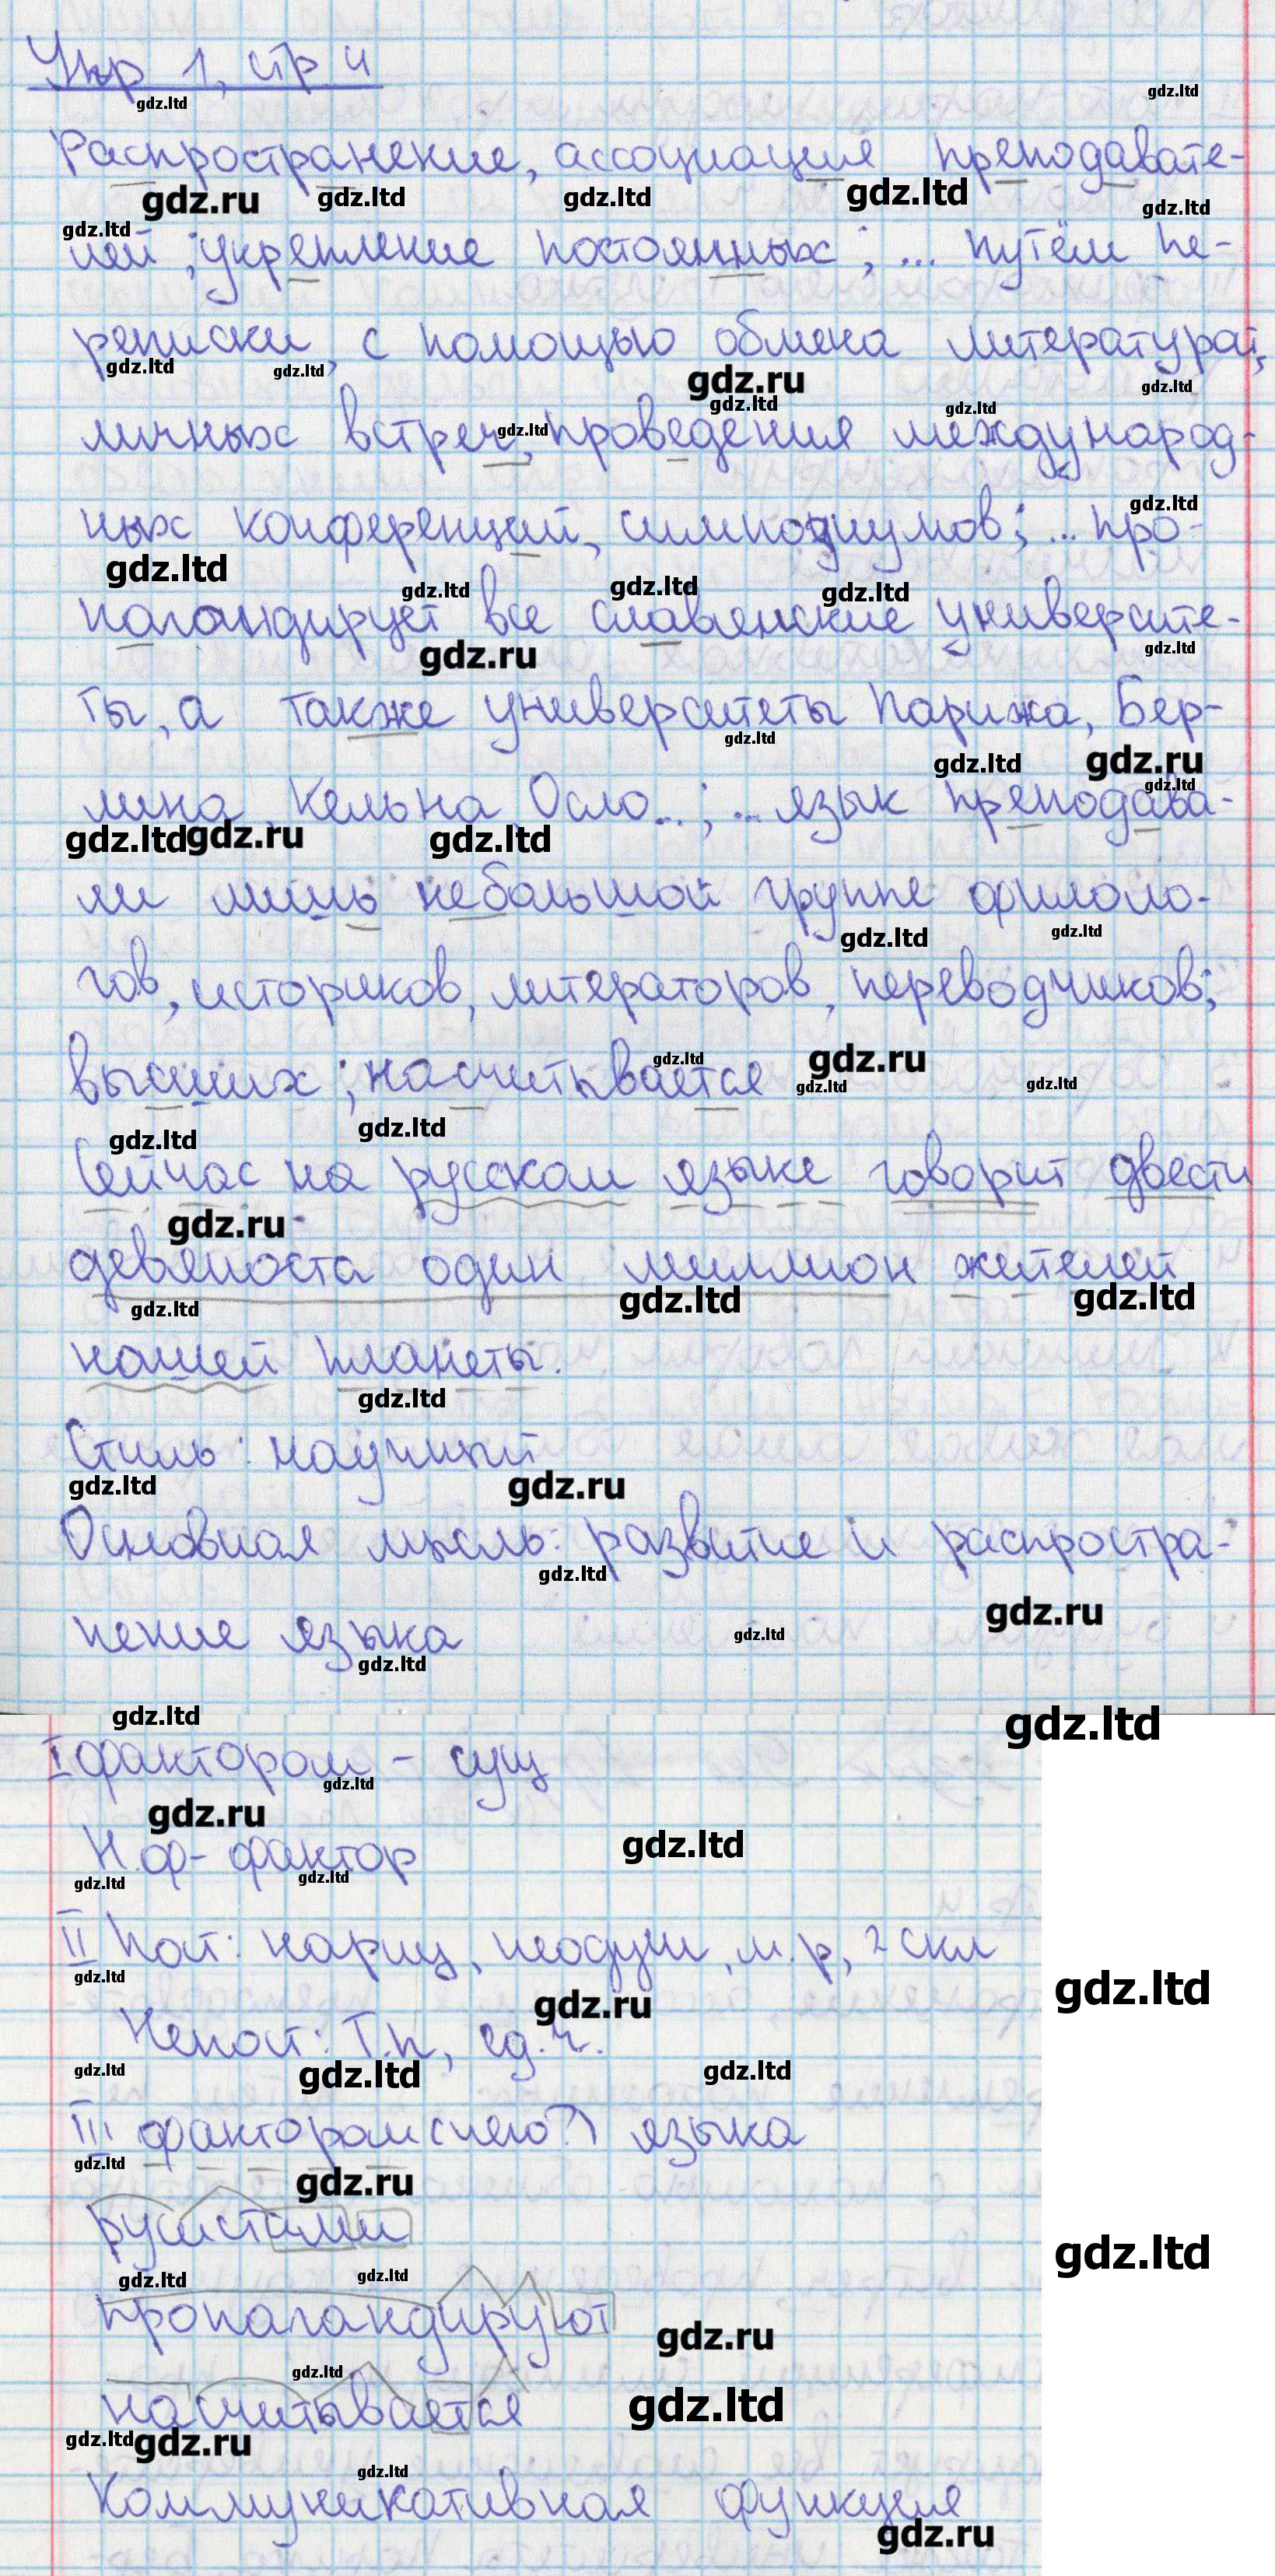 Упр 1, стр 4
Распространение, ассоциация преподавате-
лей; укрепление постоянных; ... путём пе-
реписки, с помощью обмена литературой,
личных встреч, проведения международ-
ных конференций, симпозиумов; ... про-
пагандирует все славянские университе-
ты, а также университеты Парижа, Бер-
лина, Кельна, Осло...; ... язык препoдава-
ли лишь небольшой группе филоло-
гов, историков, литераторов, переводчиков;
высших; насчитывается
Сейчас на русском языке говорит двести
девяноста один миллион жителей
нашей планеты.
Стиль: научный
Основная мысль: развитие и распростра-
нение языка
I фактором - сущ
Н.ф - фактор
II Пост: нариц, неодуш, м.р, 2 скл
Непост: Т.п, ед.ч.
III фактором (чего?) языка
русистами
пропагандируют
насчитывается
Коммуникативная функция
gdz.ltd
gdz.ru